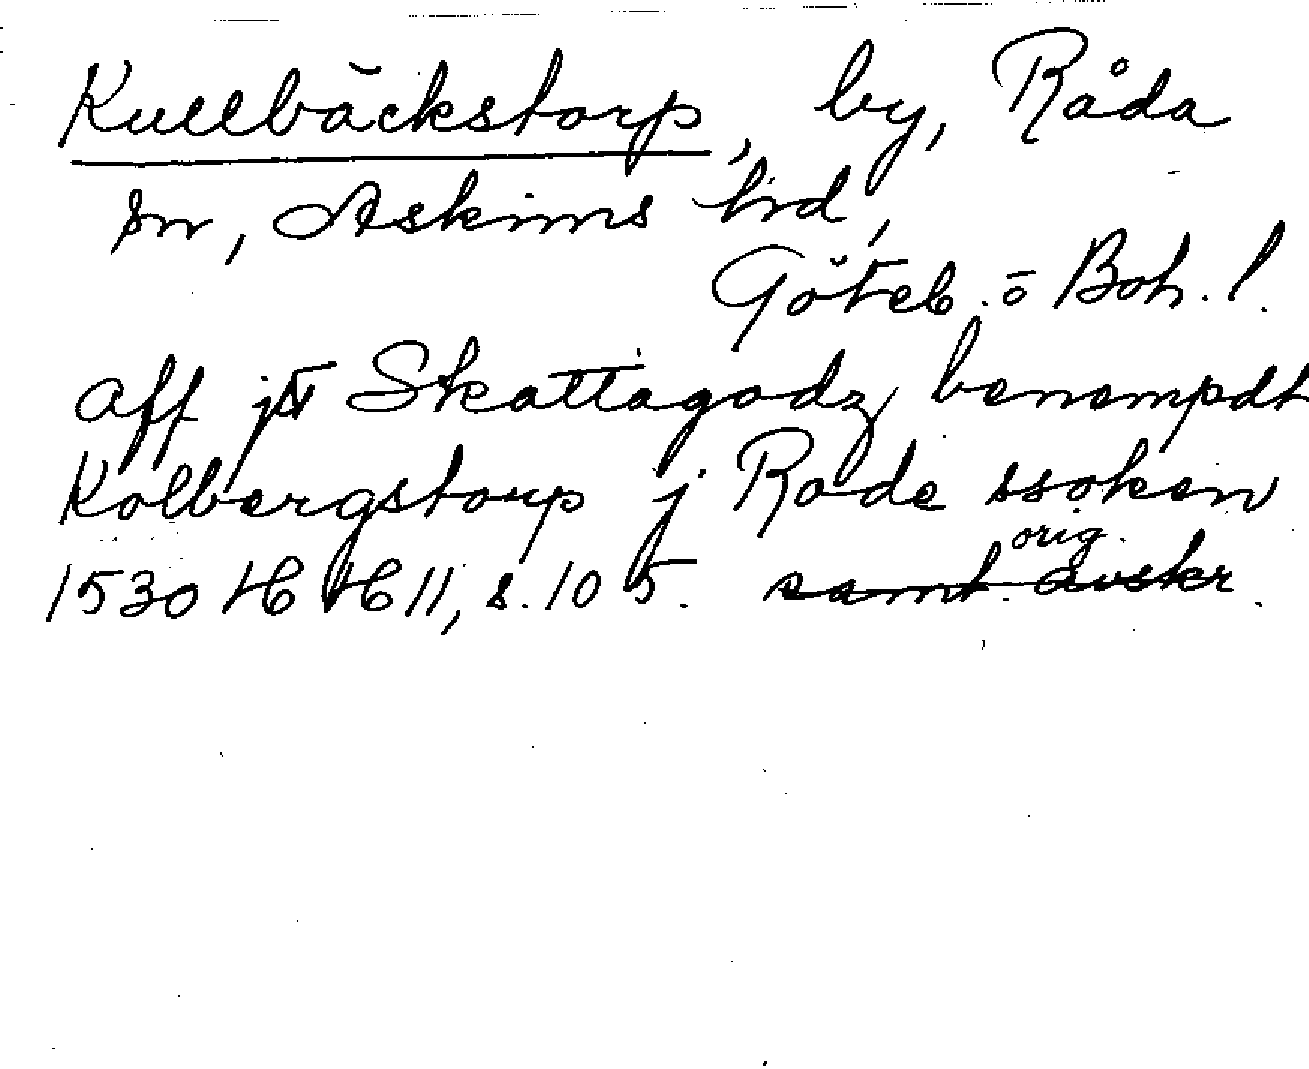 Kullbäckstorp, by, Råda
sn, Askims hrd,
Göteb. o Boh. l.
aff jtt Skattagodz benempdt
Kolbergstorp j Rade ssoken
orig.
1530 HH 11, s. 105. samt. avskr.